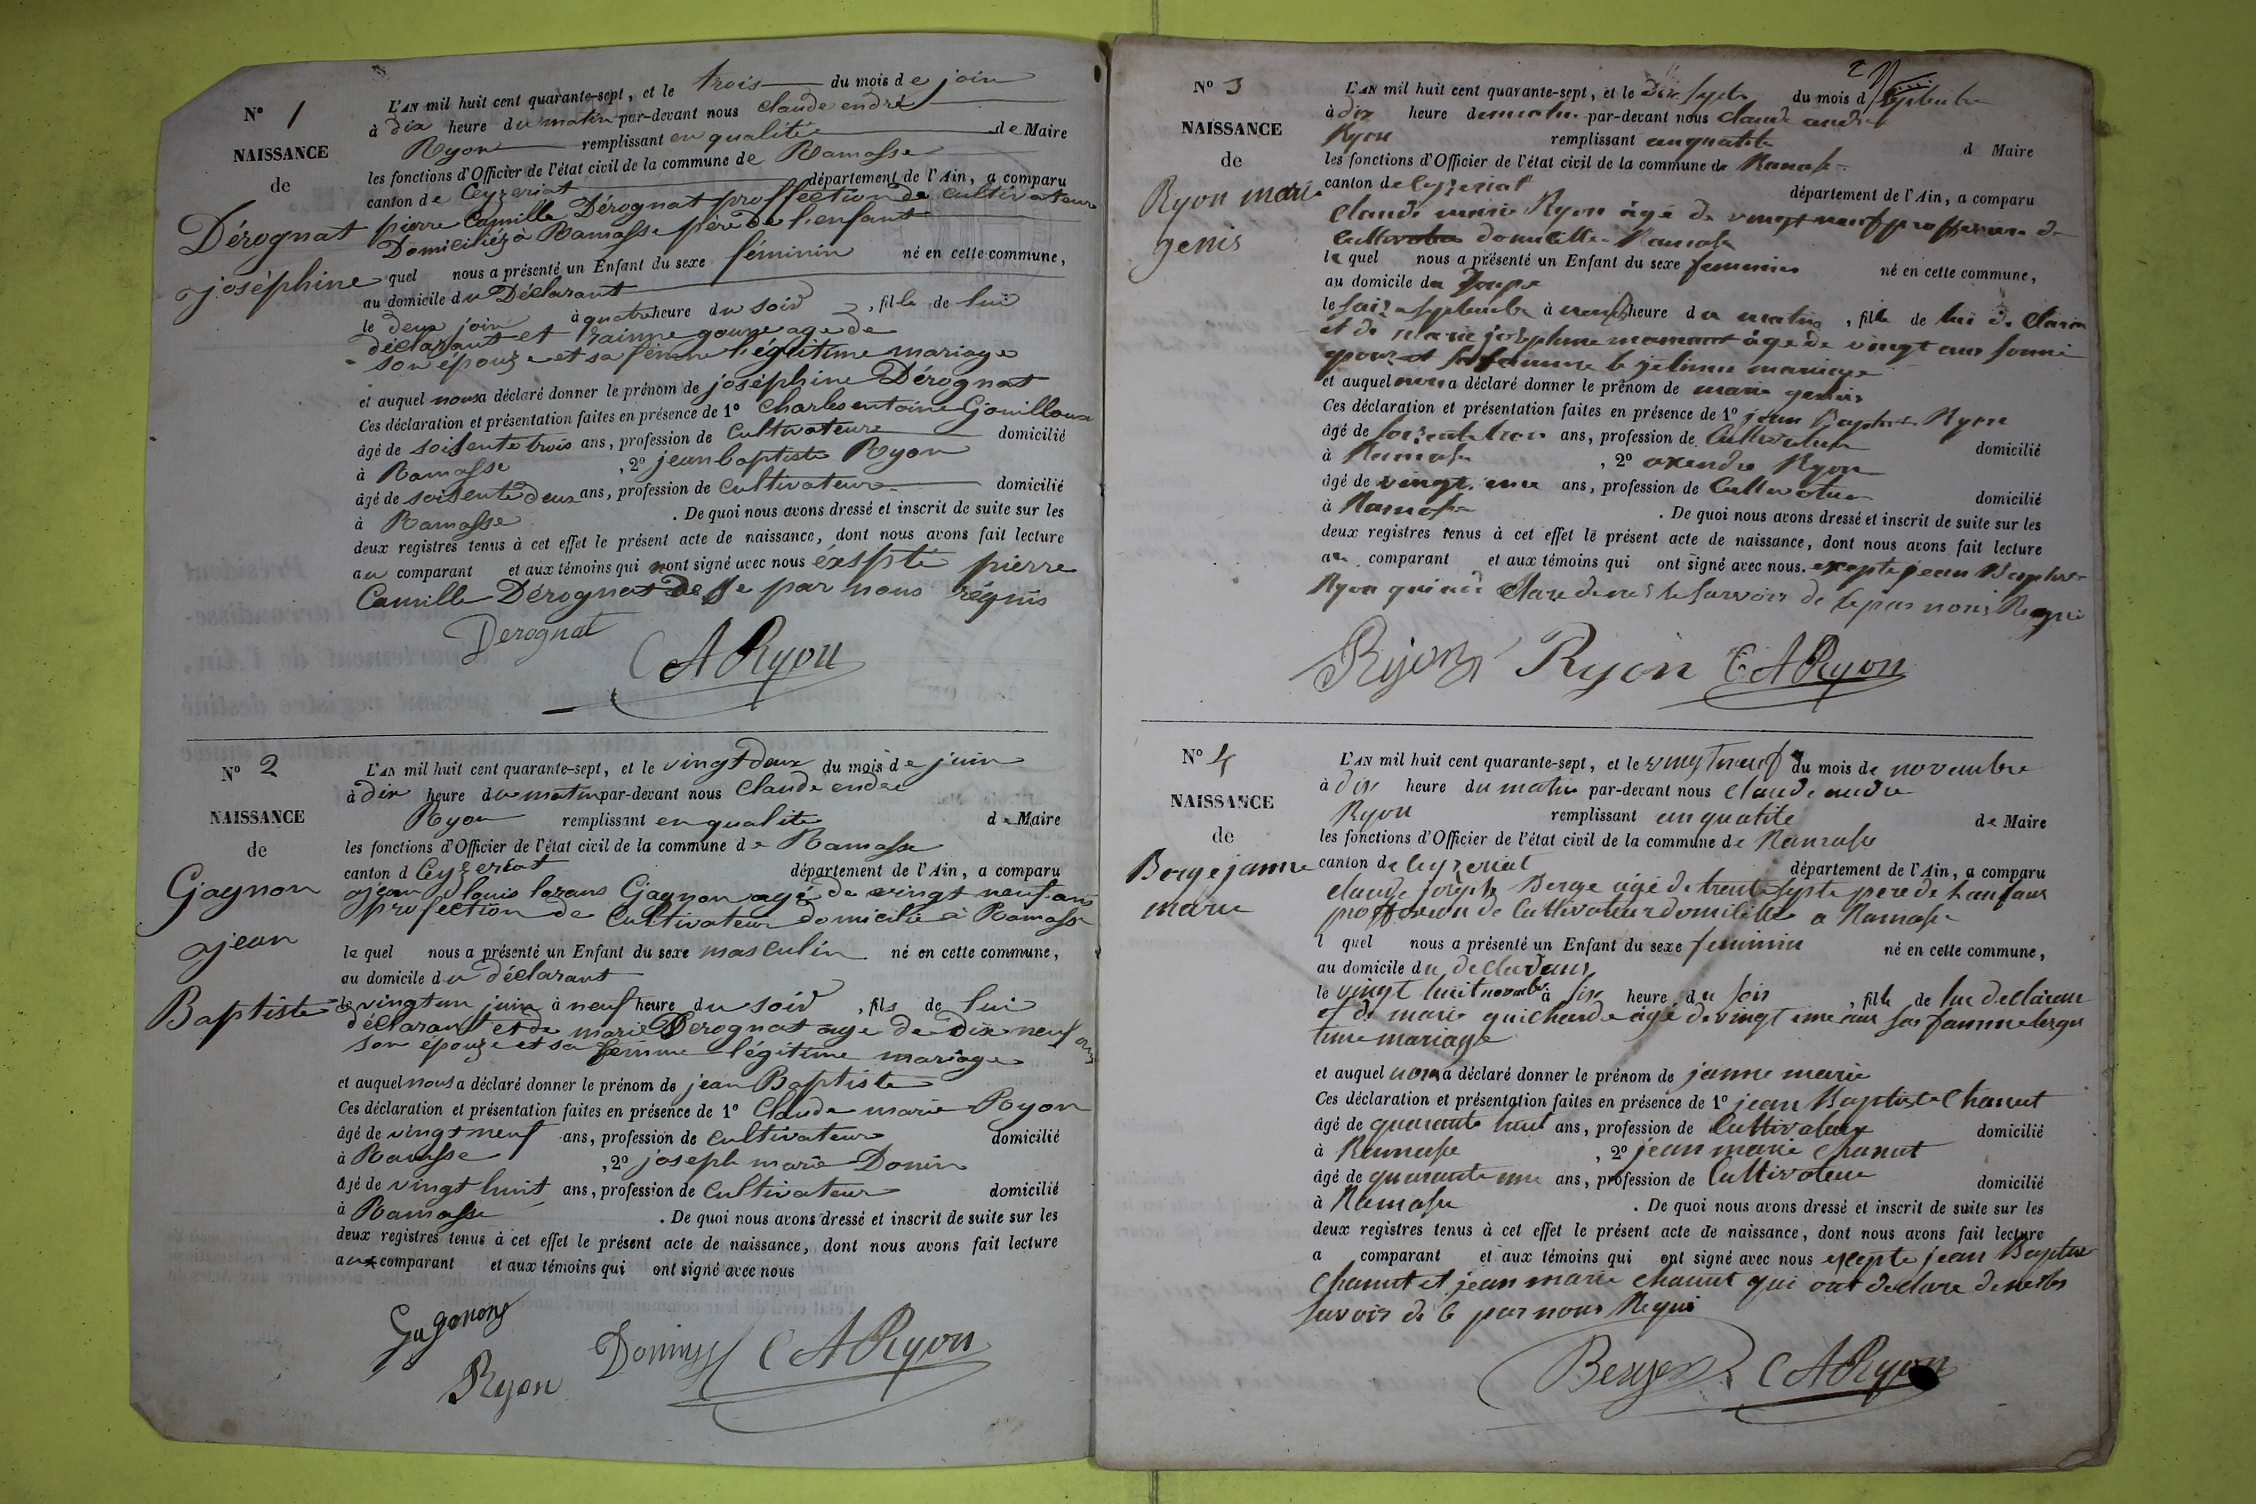 N° 1
NAISSANCE
de
Dérognat
joséphine
L'AN mil huit cent quarante-sept, et le trois du mois de join
à dix heure du matin par-devant nous Claude endré
Ryon remplissant en qualitée de Maire
les fonctions d'Officier de l'état civil de la commune de Ramasse
canton de Ceyzeriat département de l'Ain, a comparu
pierre Camille Dérognat proffection de cultivateur
Domiciliéz à Ramasse père de l'enfant
quel nous a présenté un Enfant du sexe féminin né en cette commune,
au domicile du Déclarant
le deux join à quatre heure du soir, fille de lui
déclarant et age de
son épouze et sa femme légitime mariage
et auquel nous a déclaré donner le prénom de joséphine Dérognat
Ces déclaration et présentation faites en présence de 1° Charles entoine Gouilloux
âgé de soisente trois ans, profession de Cultivateur domicilié
à Ramasse, 2° jean baptiste Ryon
âgé de soisente deux ans, profession de cultivateur domicilié
à Ramasse. De quoi nous avons dressé et inscrit de suite sur les
deux registres tenus à cet effet le présent acte de naissance, dont nous avons fait lecture
au comparant et aux témoins qui nont signé avec nous éxspté pierre
Camille Dérognat De se par nous réquis
Derognat
CARyon
N° 2
NAISSANCE
de
Gagnon
jean
Baptiste
L'AN mil huit cent quarante-sept, et le vingt deux du mois de juin
à dix heure du matin par-devant nous Claude endré
Ryon remplissant en qualite de Maire
les fonctions d'Officier de l'état civil de la commune de Ramasse
canton d Ceyzeriat département de l'Ain, a comparu
jean louis lazans Gagnon agé de vingt neuf ans
profection de Cultivateur domicilié à Ramasse
le quel nous a présenté un Enfant du sexe masculin né en cette commune,
au domicile du déclarant
le vingt un juin à neuf heure du soir, fils de lui
déclarant et de marie Derognat age de Dix neuf ans
son épouze et sa femme légitime mariage
et auquel nous a déclaré donner le prénom de jean Baptiste
Ces déclaration et présentation faites en présence de 1° Claude marie Ryon
âgé de vingt neuf ans, profession de cultivateur domicilié
à Ramasse, 2° joseph marie Donin
âgé de vingt huit ans, profession de Cultivateur domicilié
à Ramasse. De quoi nous avons dressé et inscrit de suite sur les
deux registres tenus à cet effet le présent acte de naissance, dont nous avons fait lecture
aux comparant et aux témoins qui ont signé avec nous
Gagonon
Donin CARyon
Ryon
2
N° 3
NAISSANCE
de
Ryon marie
genis
L'AN mil huit cent quarante-sept, et le dix septe du mois d septembre
à dix heure du matin par-devant nous Claude andré
Ryon remplissant anqualité d Maire
les fonctions d'Officier de l'état civil de la commune de Ramase
canton de Ceyzeriat département de l'Ain, a comparu
Claude marie Ryon âgé de vingt neuf proffession de
Cultivateur domicillié Ramase
le quel nous a présenté un Enfant du sexe feminin né en cette commune,
au domicile du
le saize septembre à neuf heure du matin, fille de lui de Claran
et de marie josephine mamant âge de vingt ans sonné
pouz et safamme le jetime mariage
et auquel nous a déclaré donner le prénom de marie genis
Ces déclaration et présentation faites en présence de 1° jean Baptiste Ryon
âgé de soizente trois ans, profession de Cultivateur domicilié
à Ramase, 2° axendre Ryon
âgé de vingt une ans, profession de Cultivateur domicilié
à Ramase. De quoi nous avons dressé et inscrit de suite sur les
deux registres tenus à cet effet le présent acte de naissance, dont nous avons fait lecture
au comparant et aux témoins qui ont signé avec nous. excepte jean Baptiste
Ryon qui a de Clare de nes le savoir de se par nous Requi
Ryon Ryon CARyon
N° 4
NAISSANCE
de
Berge janne
marie
L'AN mil huit cent quarante-sept, et le vingt neuf du mois de novembre
à dix heure du matin par-devant nous claude andre
Ryon remplissant anqualité de Maire
les fonctions d'Officier de l'état civil de la commune de Ramase
canton de Ceyzeriat département de l'Ain, a comparu
claude joseph Berge âgé de trente septe pere de Lanfans
proffession de Cultivateur domicillié a Ramase
l quel nous a présenté un Enfant du sexe feminin né en cette commune,
au domicile du declarans
le vingt huit novembre à six heure du soir, fille de lui declaran
et de marie guicharde âgé de vingt une ans sas famme leega
time mariage
et auquel nous a déclaré donner le prénom de janne marie
Ces déclaration et présentation faites en présence de 1° jean Baptiste Chanut
âgé de quarante huit ans, profession de Cultivateur domicilié
à Ramase, 2° jean marie Chanut
âgé de quarante une ans, profession de Cultivateur domicilié
à Ramase. De quoi nous avons dressé et inscrit de suite sur les
deux registres tenus à cet effet le présent acte de naissance, dont nous avons fait lecture
a comparant et aux témoins qui ont signé avec nous excepte jean Baptiste
Chanut et jean marie chanut qui ont declare de nes les
savoir de se par nous Requi
Berger CARyon